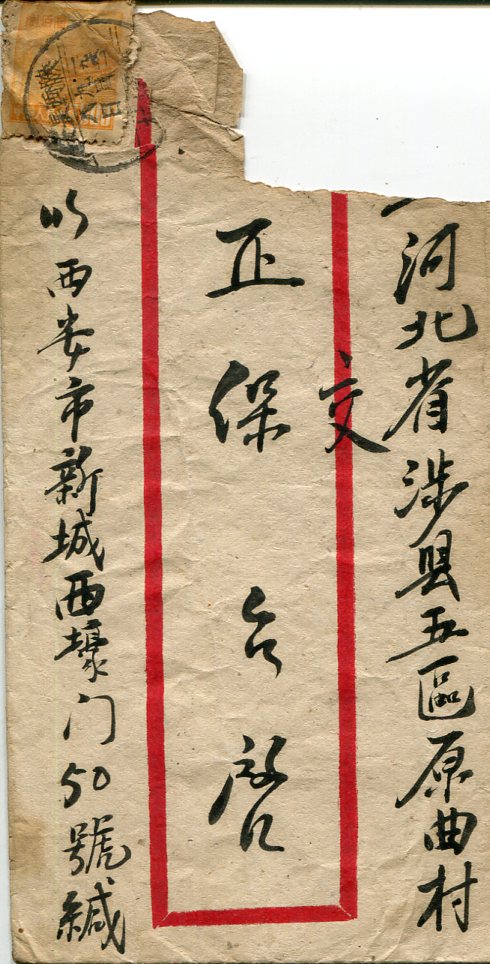 河北省涉县五區原曲村
交
正保台啓
西安市新城西壕门50號緘